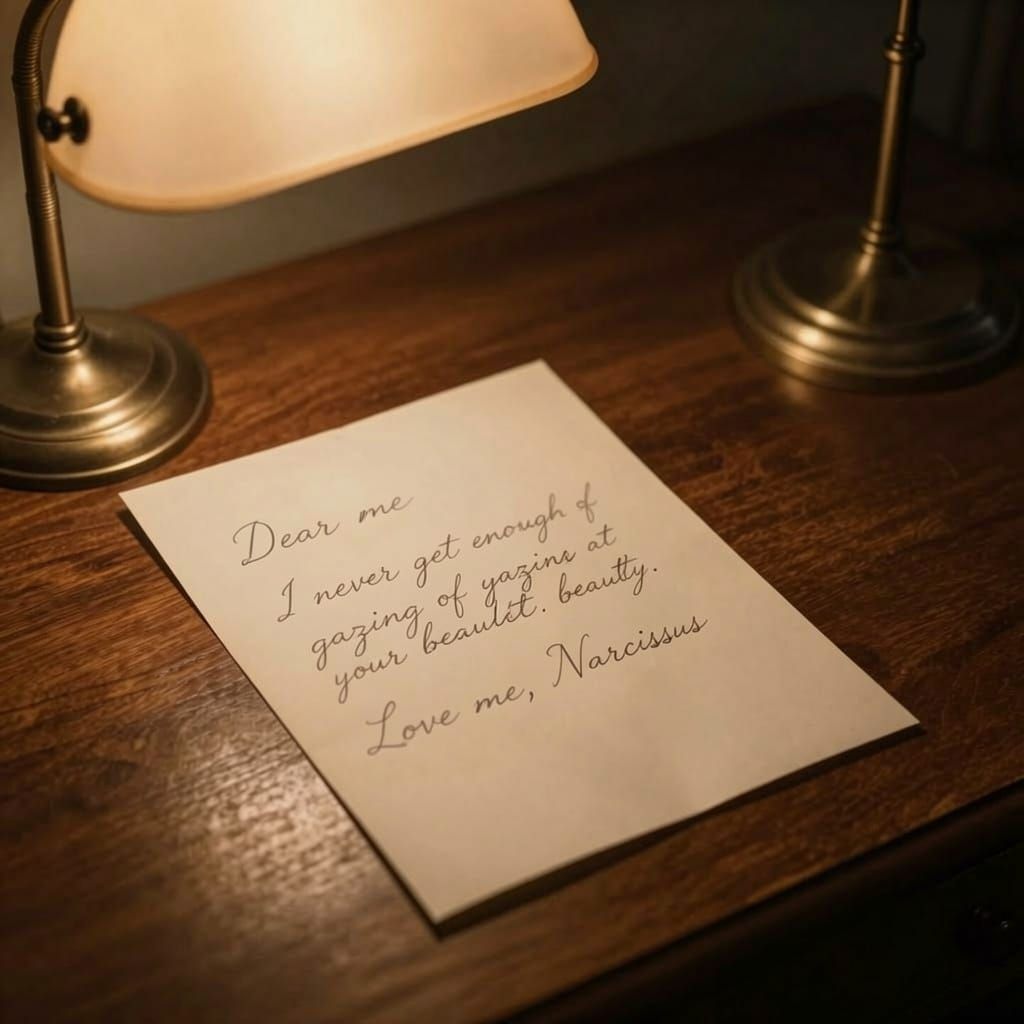 Dear me
I never get enough of
gazing of yazins at
your beaulit. beautty.
Love me, Narcissus